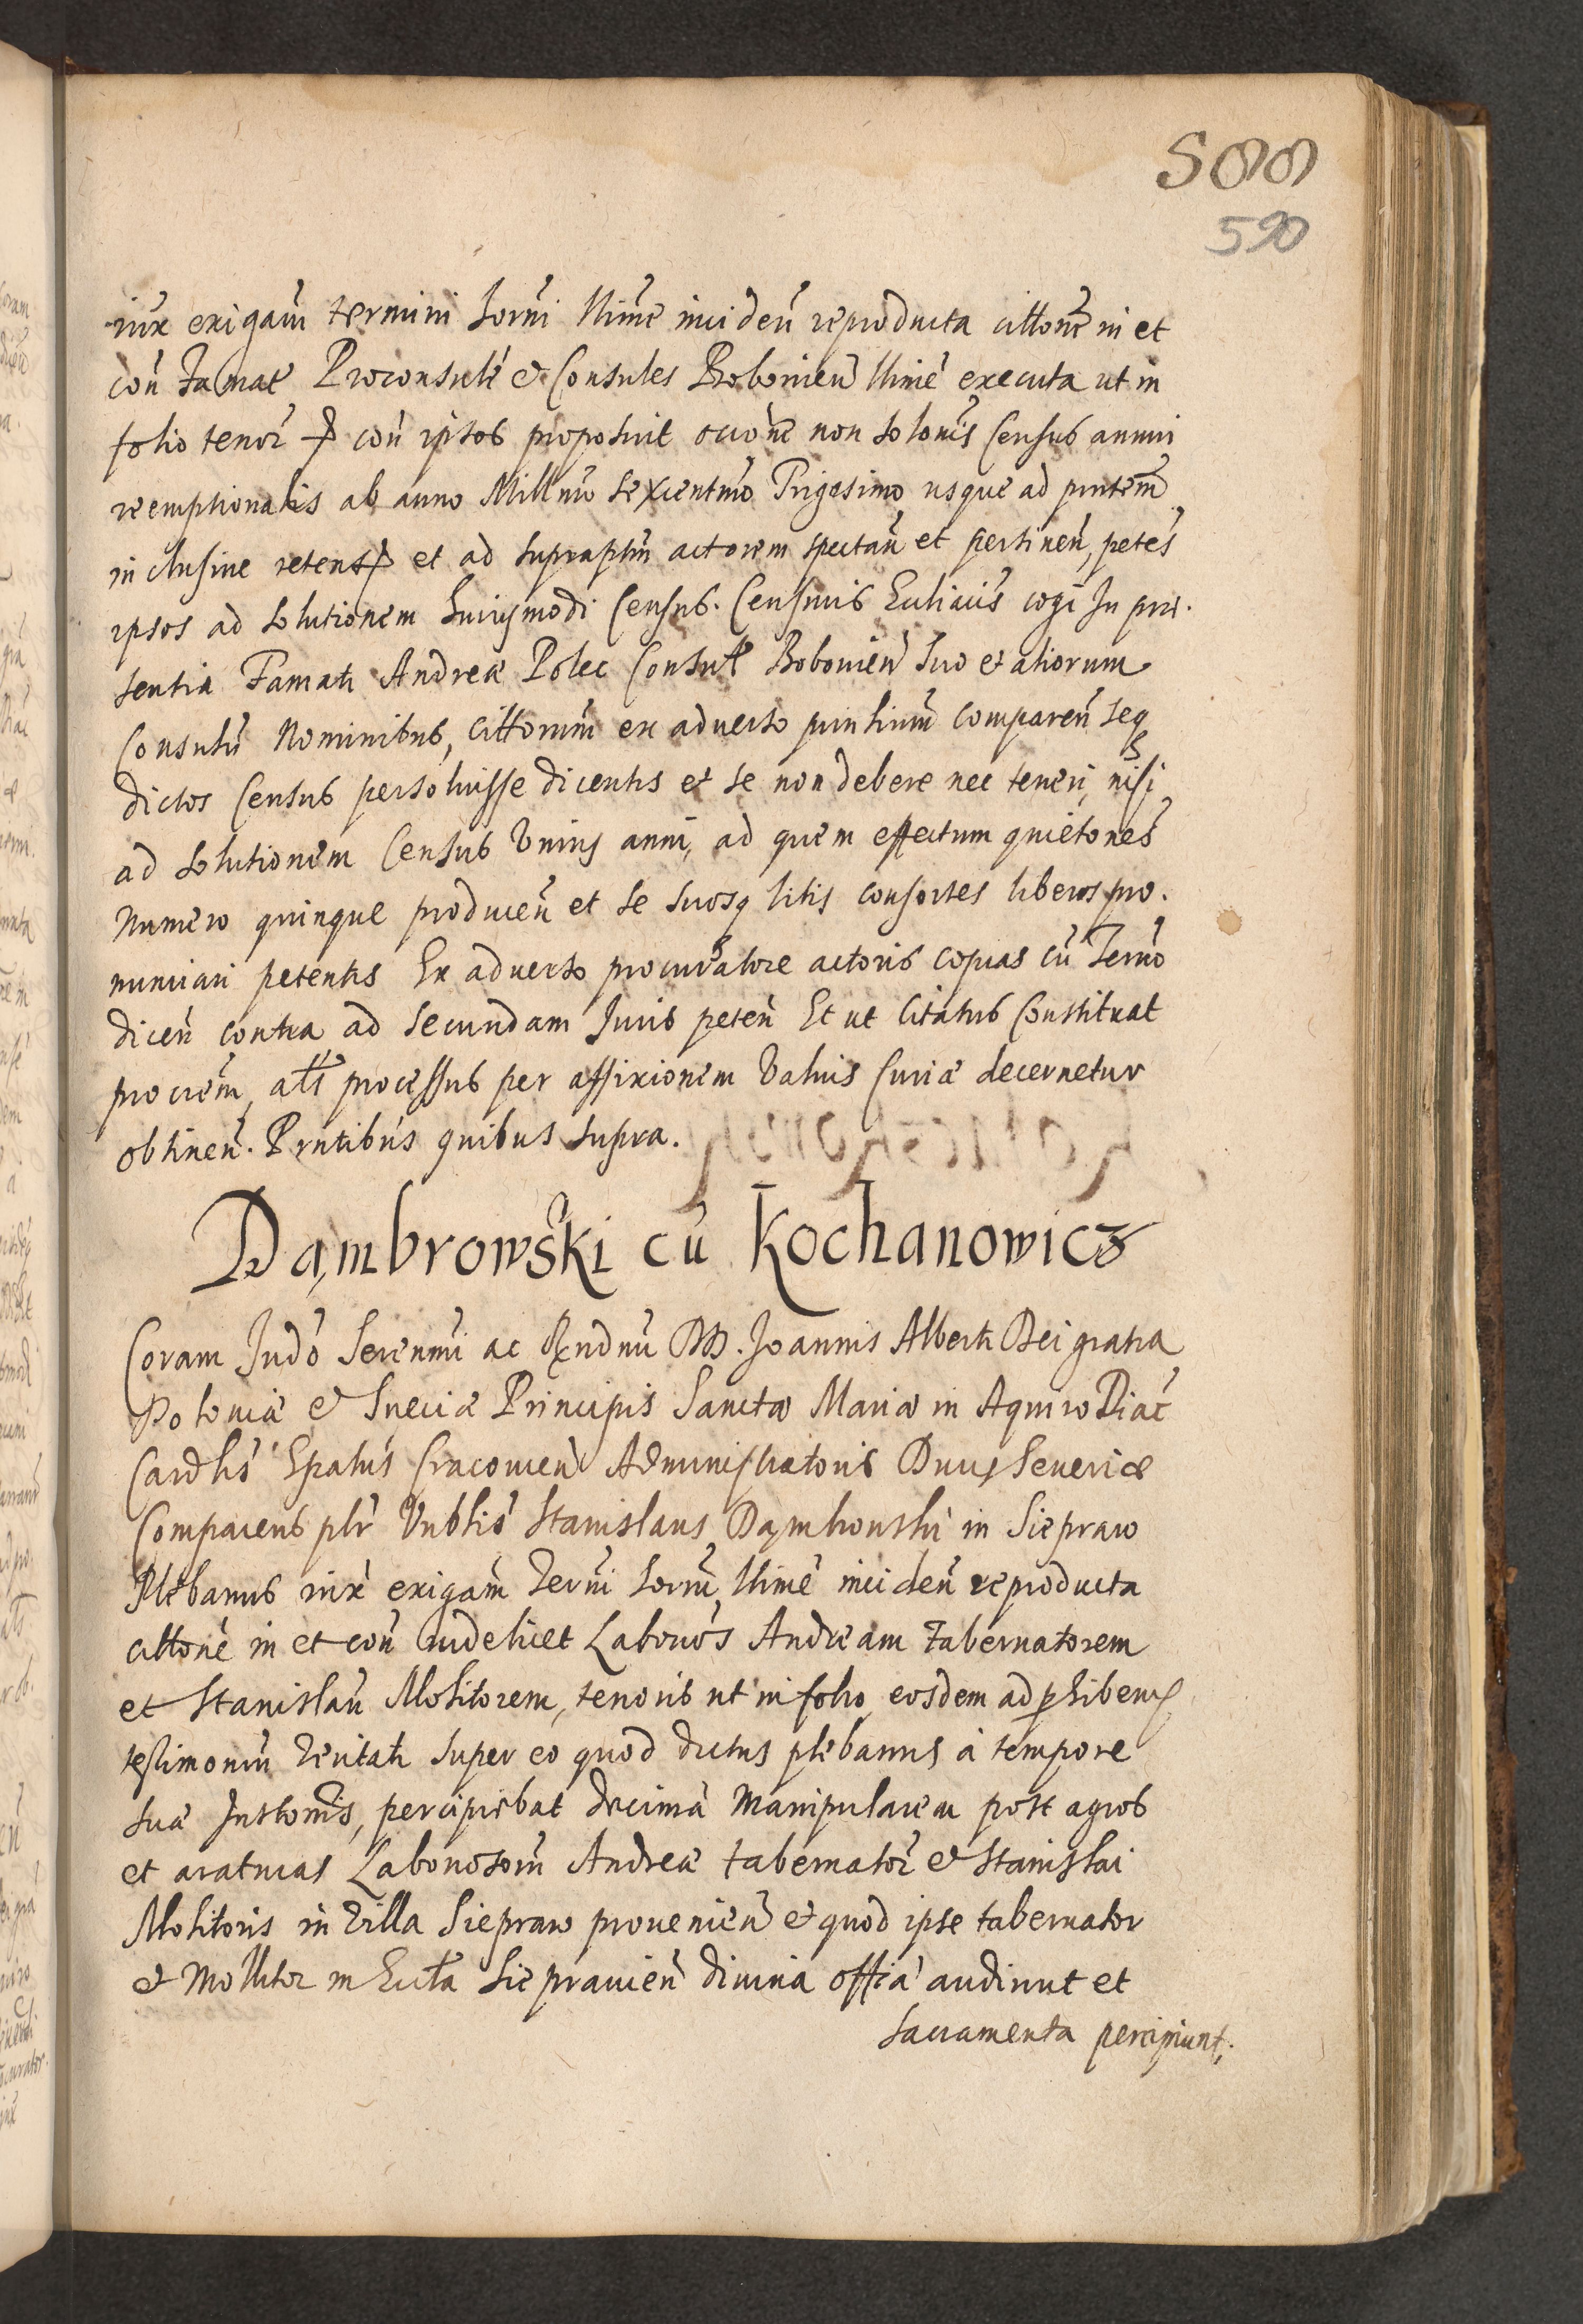 599
590
iux exigam̃ termini horni llime inciden̄ reproducta citt̃one in et
con̄ Famat̃ Proconsulẽ & Consules Bobonien̄ llimẽ executa ut in
folio tenor̃ con̄ ipsos proposuit occ̃one non solonis Census annui
reemptionalis ab anno Mill̃mo sexcentm̃o Trigesimo usque ad pn̄tem
inclusiue retent et ad supraptũ actorem spectañ et pertineñ, peteñs
ipsos ad solutionem huiusmodi Census. Censuris Eccliacis cogi In præ-
sentia Famati Andreæ Polec Consul̃ Bobouień suo et aliorum
Consulũ Nominibus, cittorum̃ ex aduerso principium compareñ seq
dictos Census persoluisse dicentis et se non debere nec teneri, nisi
ad solutionem Census Vnius anni, ad quem effectum quietões
numero quinque produceñ et se suosq litis consortes liberos pro-
nunciari petentis Ex aduerso procuratore actoris copias cũ Term̃o
diceñ contra ad secundam Iuris peteñ Et ut Citatus Constituat
procrem̃, als̃ processus per affixionem Valuis Curiæ decernetur
obtineñ. Pn̄tibus quibus supra.
Dąmbrowski cũ Kochanowicz
Coram Indõ Serenmĩ ac Rndmĩ DD. Joannis Alberti Dei gratia
Poloniæ & Sueciæ Principis Sanctæ Mariæ in Aquiro Diac̃
Cardlis̃ Epatus̃ Cracouień Administratoris Ducus Seueriæ
Comparens plr̃ Vnblis̃ Stanislaus Dąmbrouski in Siepraw
Plebanus iuxẽ exigam̃ Term̃i horni, llimẽ incideñ reproducta
cittonẽ in et coñ videlicet Laboriõs Andream Tabernatorem
et Stanislaũ Molitorem, tenoris ut in folio eosdem ad phibenđ
testimoniũ Veritati super eo quod dictus plebanus à tempore
suæ Inst̃onis, percipiebat decimã Manipularem post agros
et araturas Laboriosorũ Andreæ tabernator̃ & Stanislai
Molitoris in Villa Siepraw prouenieñ & quod ipse tabernator
& Molitor in Eccla Siepravień diuina offia audiunt et
sacramenta percipiunt,